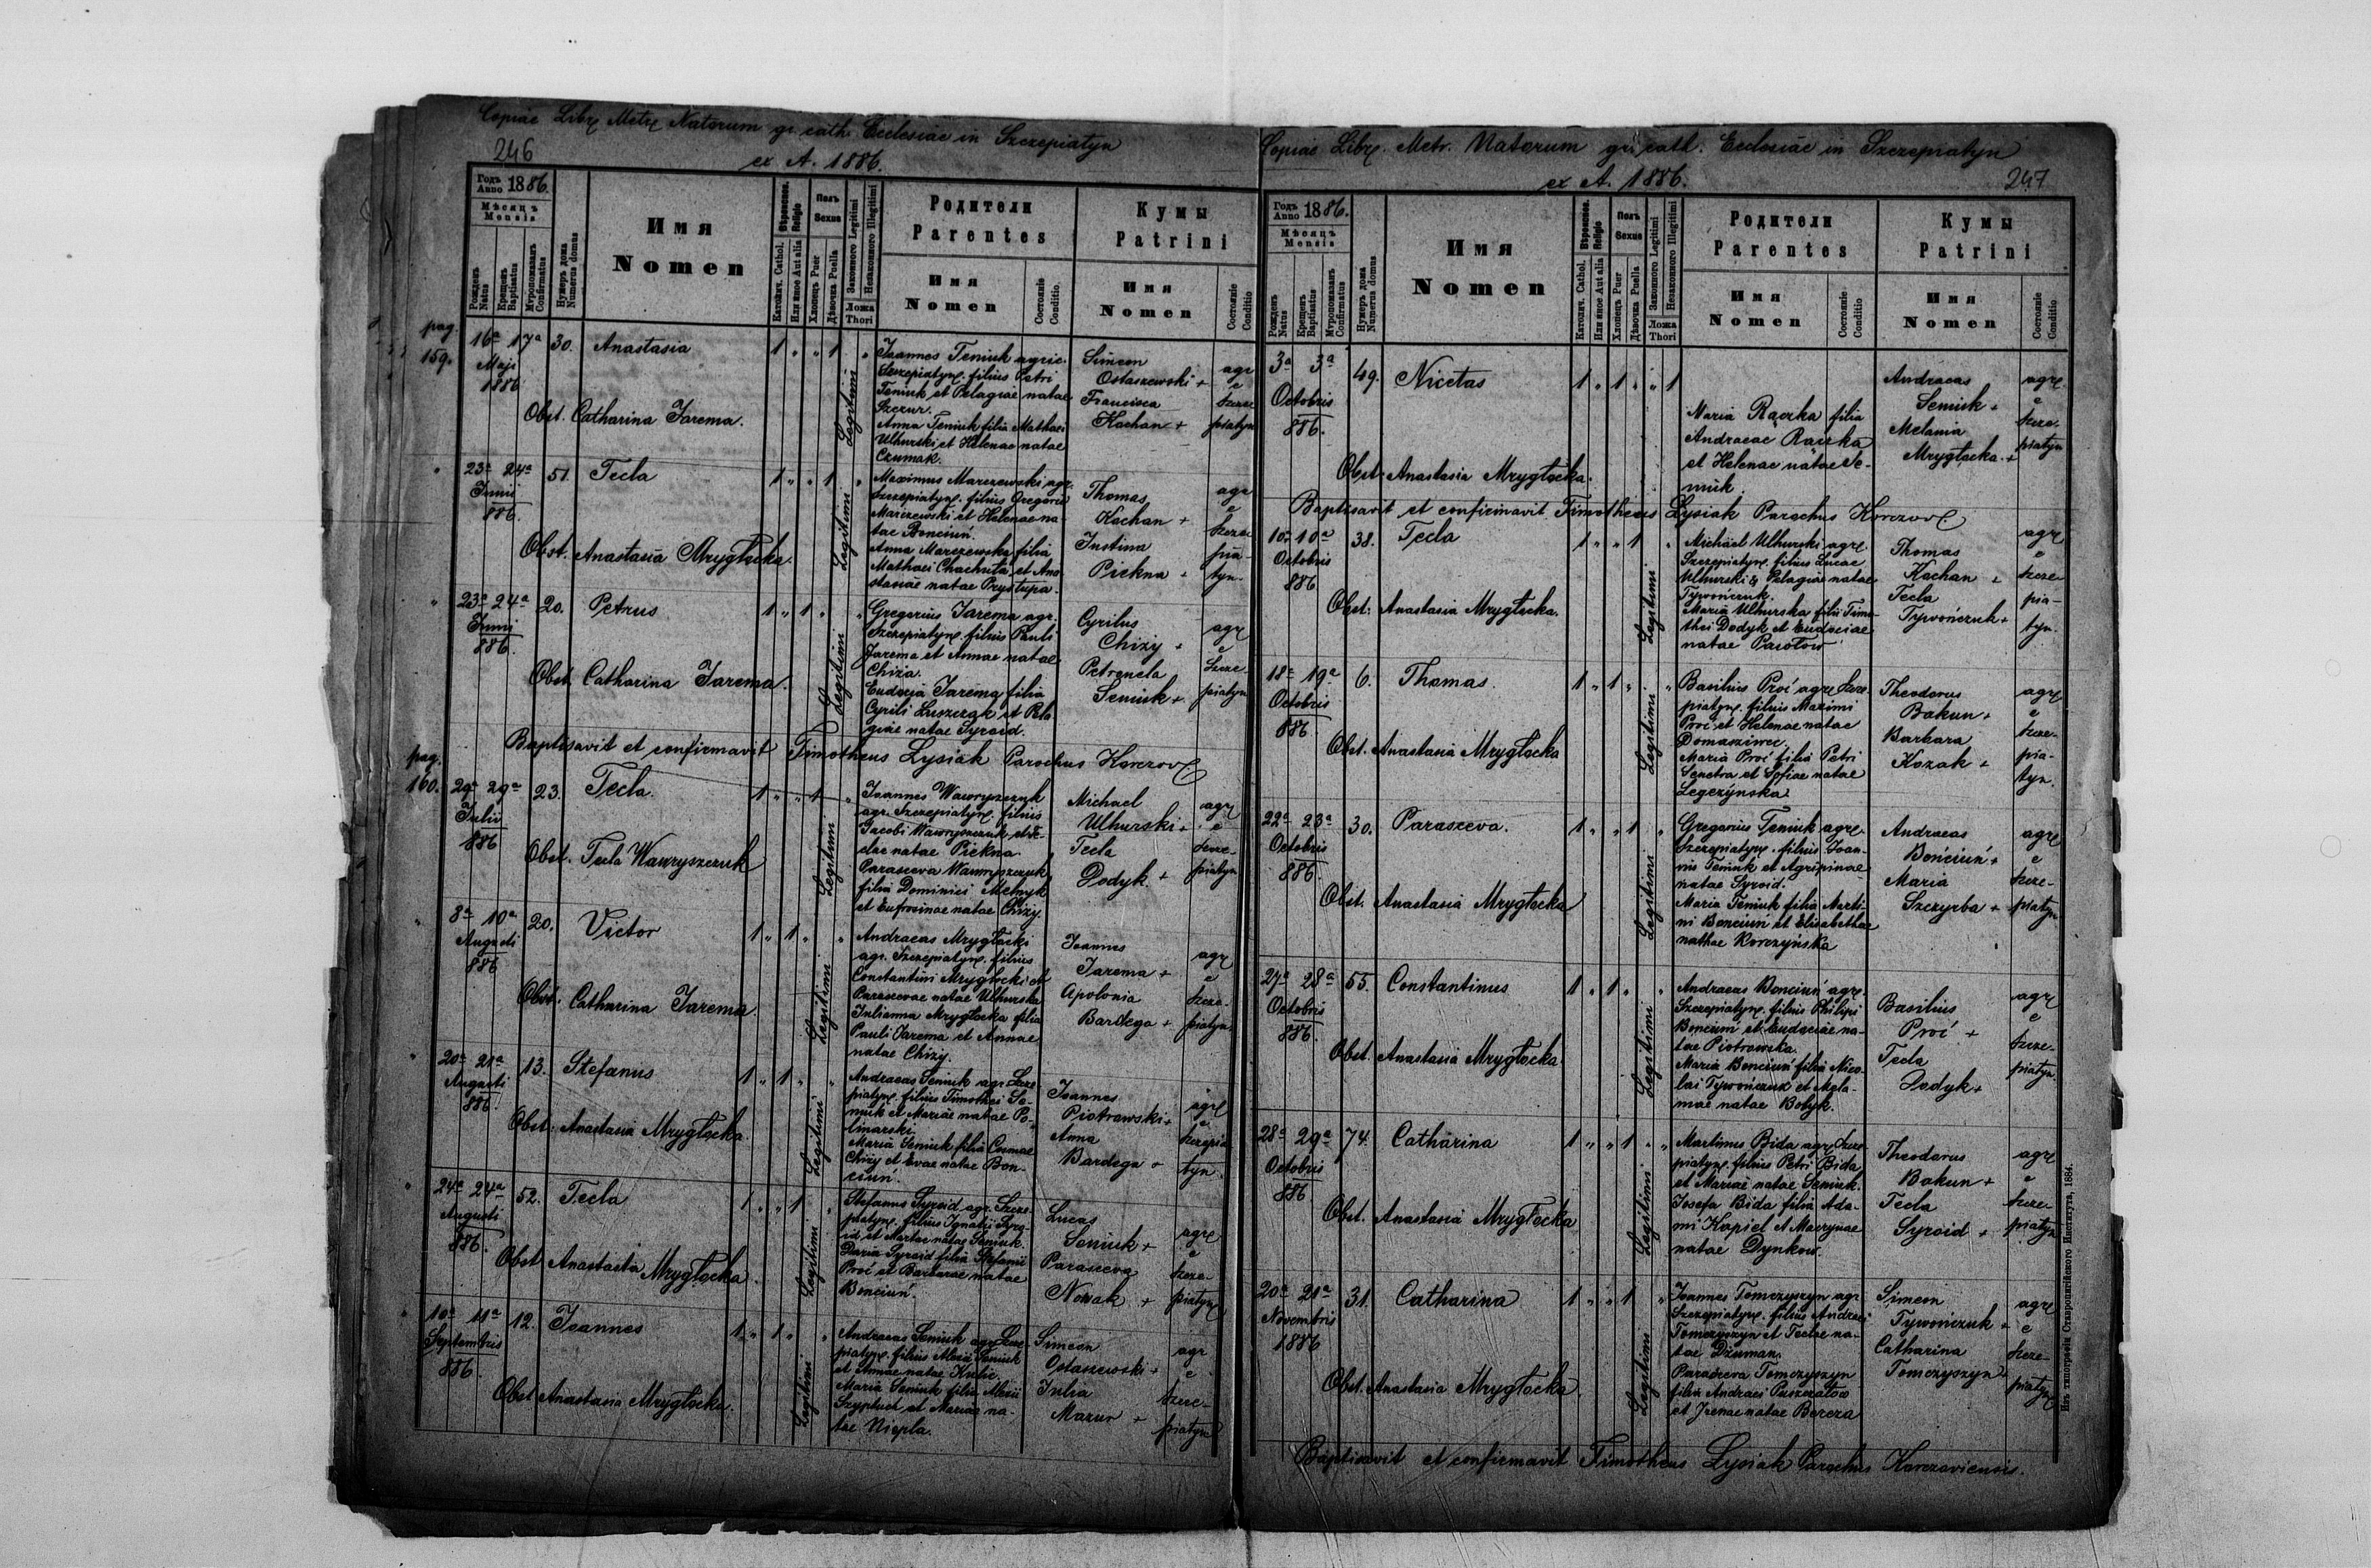 Copiae Libr. Metr. Natorum gr. cath. Ecclesiae in Szczepiatyn
246
ex A. 1886.
Годъ Anno 1886.
Мѣсяцъ Mensis
Рожденъ Natus
Крещенъ Baptisatus
Мvропомазанъ Confirmatus
Нумеръ дома Numerus domus
Имя
Nomen
Вѣроиспов. Religio
Католич. Cathol.
Или иное Aut alia
Полъ Sexus
Хлопецъ Puer
Дѣвочка Puella
Законного Legitimi
Незаконного Illegitimi
Ложа Thori
Родители
Parentes
Имя
Nomen
Состояніе Conditio.
Кумы
Patrini
Имя
Nomen
Состояніе Conditio
pag. 159.
16a 17a 30. Anastasia 1 " " 1 "
Maji
1886
Obst. Catharina Jarema.
Legitimi
Joannes Teniuk agric.
Szczepiatyn. filius Petri
Teniuk et Pelagiae natae
Szczur.
Anna Teniuk filia Mathaei
Ulhurski et Helenae natae
Czumak.
Simeon
Ostaszewski +
Francisca
Kachan +
agr
e
Szcze
piatyn
" 23a 24a 51. Tecla 1 " " 1 "
Junii
886.
Obst. Anastasia Mrygłocka.
Legitimi
Maximus Marczewski agr.
Szczepiatyn. filius Gregorii
Marczewski et Helenae na-
tae Bonciuń.
Anna Marczewska filia
Mathaei Chachuła et Ana
stasiae natae Prystupa.
Thomas
Kachan +
Justina
Piekna +
agr
e
Szcze
pia-
tyn.
" 23a 24a 20. Petrus 1 " 1 " "
Junii
886.
Obst. Catharina Jarema.
Legitimi
Gregorius Jarema agr.
Szczepiatyn. filius Pauli
Jarema et Annae natae
Chiza.
Eudocia Jarema filia
Cyrili Łuszczak et Pela
giae natae Syroid.
Cyrilus
Chizy +
Petronela
Seniuk +
agr
e
Szcze-
piatyn
Baptisavit et confirmavit Timotheus Lysiak Parochus Korczov
pag. 160.
29a 29a 23. Tecla. 1 " " 1 "
Julii
886
Obst. Tecla Wawryszczuk
Legitimi
Joannes Wawryszczuk
agr. Szczepiatyn. filius
Jacobi Wawryszczuk et Te-
clae natae Piekna.
Parasceva Wawryszczuk
filia Dominici Melnyk
et Eufrosinae natae Chizy.
Michael
Ulhurski +
Tecla
Dodyk. +
agr
e
Szcze-
piatyn
" 8a 10a 20. Victor 1 " 1 " "
Augusti
886
Obst. Catharina Jarema.
Legitimi
Andraeas Mrygłocki
agr. Szczepiatyn. filius
Constantini Mrygłocki et
Parascevae natae Ulhurska
Julianna Mrygłocka filia
Pauli Jarema et Annae
natae Chizy.
Joannes
Jarema +
Apolonia
Bardega +
agr
e
Szcze-
piatyn.
" 20a 21a 13. Stefanus 1 " 1 " "
Augusti
886.
Obst. Anastasia Mrygłocka.
Legitimi
Andraeas Seniuk agr. Szcze
piatyn. filius Timothei Se-
niuk et Mariae natae Po-
linarski.
Maria Seniuk filia Cosmae
Chizy et Evae natae Bon-
ciuń.
Joannes
Piotrowski +
Anna
Bardega +
agr
e
Szczepia
tyn.
" 24a 24a 52. Tecla 1 " " 1 "
Augusti
886.
Obst Anastasia Mrygłocka.
Legitimi
Stefanus Syroid agr. Szcze-
piatyn. filius Ignatii Syro-
id et Martae natae Seniuk.
Daria Syroid filia Stefanii
Proć et Barbarae natae
Bonciun.
Lucas
Seniuk +
Parasceva
Nowak +
agr
e
Szcze-
piatyn
" 10a 11a 12. Joannes 1 " 1 " "
Septembris
886.
Obst Anastasia Mrygłocka.
Legitimi
Andraeas Seniuk agr. Szcze-
piatyn. filius Alexii Seniuk
et Annae natae Kulic.
Maria Seniuk filia Alexii
Szyptuch et Mariae na-
tae Niepla.
Simeon
Ostaszewski +
Julia
Mazur +
agr
e
Szcze-
piatyn
Copiae Libr. Metr. Natorum gr. cath. Ecclesiae in Szczepiatyn
ex A. 1886.
247
Годъ Anno 1886.
Мѣсяцъ Mensis
Рожденъ Natus
Крещенъ Baptisatus
Мvропомазанъ Confirmatus
Нумеръ дома Numerus domus
Имя
Nomen
Вѣроиспов. Religio
Католич. Cathol.
Или иное Aut alia
Полъ Sexus
Хлопецъ Puer
Дѣвочка Puella
Законного Legitimi
Незаконного Illegitimi
Ложа Thori
Родители
Parentes
Имя
Nomen
Состояніе Conditio
Кумы
Patrini
Имя
Nomen
Состояніе Conditio
3a 3a 49. Nicetas 1 " 1 " " 1
Octobris
886.
Obst. Anastasia Mrygłocka.
Maria Raczka filia
Andraeae Raczka
et Helenae natae Se-
niuk.
Andraeas
Seniuk +
Melania
Mrygłocka +
agr.
e
Szcze-
piatyn
Baptisavit et confirmavit Timotheus Lysiak Parochus Korczov
10a 10a 38. Tecla 1 " " 1 "
Octobris
886
Obst. Anastasia Mrygłocka.
Legitimi
Michael Ulhurski agr.
Szczepiatyn. filius Lucae
Ulhurski & Pelagiae natae
Tywończuk.
Maria Ulhurska filia Timo-
thei Dodyk et Eudociae
natae Pawłow
Thomas
Kachan +
Tecla
Tywończuk +
agr
e
Szcze-
pia-
tyn.
18a 19a 6. Thomas. 1 " 1 " "
Octobris
886
Obst. Anastasia Mrygłocka
Legitimi
Basilius Proć agr. Szcze-
piatyn. filius Maximi
Proć et Helenae natae
Domasziwec.
Maria Proć filia Petri
Senetra et Sofiae natae
Legezynska
Theodorus
Bakun +
Barbara
Kozak +
agr
e
Szcze-
pia-
tyn.
22a 23a 30. Parasceva. 1 " " 1 "
Octobris
886.
Obst. Anastasia Mrygłocka
Legitimi
Gregorius Teniuk agr.
Szczepiatyn. filius Joan-
nis Teniuk et Agripinae
natae Syroid.
Maria Teniuk filia Marti-
ni Bonciuń et Elisabethae
nathae Korczyńska
Andraeas
Bonciuń +
Maria
Szczyrba +
agr
e
Szcze-
piatyn
27a 28a 55. Constantinus 1 " 1 " "
Octobris
886.
Obst. Anastasia Mrygłocka.
Legitimi
Andraeas Bonciuń agr.
Szczepiatyn. filius Philipi
Bonciuń et Eudociae na-
tae Piotrowska.
Maria Bonciuń filia Nico-
lai Tywończuk et Mela-
niae natae Bobyk.
Basilius
Proć +
Tecla
Dodyk +
agr
e
Szcze-
piatyn.
28a 29a 74. Catharina 1 " " 1 " "
Octobris
886
Obst. Anastasia Mrygłocka
Legitimi
Martinus Bida agr. Szcze
piatyn. filius Petri Bida
et Mariae natae Seniuk.
Josefa Bida filia Ada-
mi Kapiel et Macrynae
natae Dynkow.
Theodorus
Bakun +
Tecla
Syroid +
agr
e
Szcze-
piatyn
20a 21a 31. Catharina 1 " " 1 "
Novembris
1886
Obst. Anastasia Mrygłocka.
Legitimi
Joannes Tomczyszyn agr
Szczepiatyn. filius Andraei
Tomczyszyn et Teclae na-
tae Dżuman.
Parasceva Tomczyszyn
filia Andraei Puszczałow
et Irenae natae Bereza
Simeon
Tywończuk +
Catharina
Tomczyszyn
agr
e
Szcze-
piatyn
Baptisavit et confirmavit Timotheus Lysiak Parochus Korczoviensis.
Изъ типографіи Ставропигійского Института, 1884.